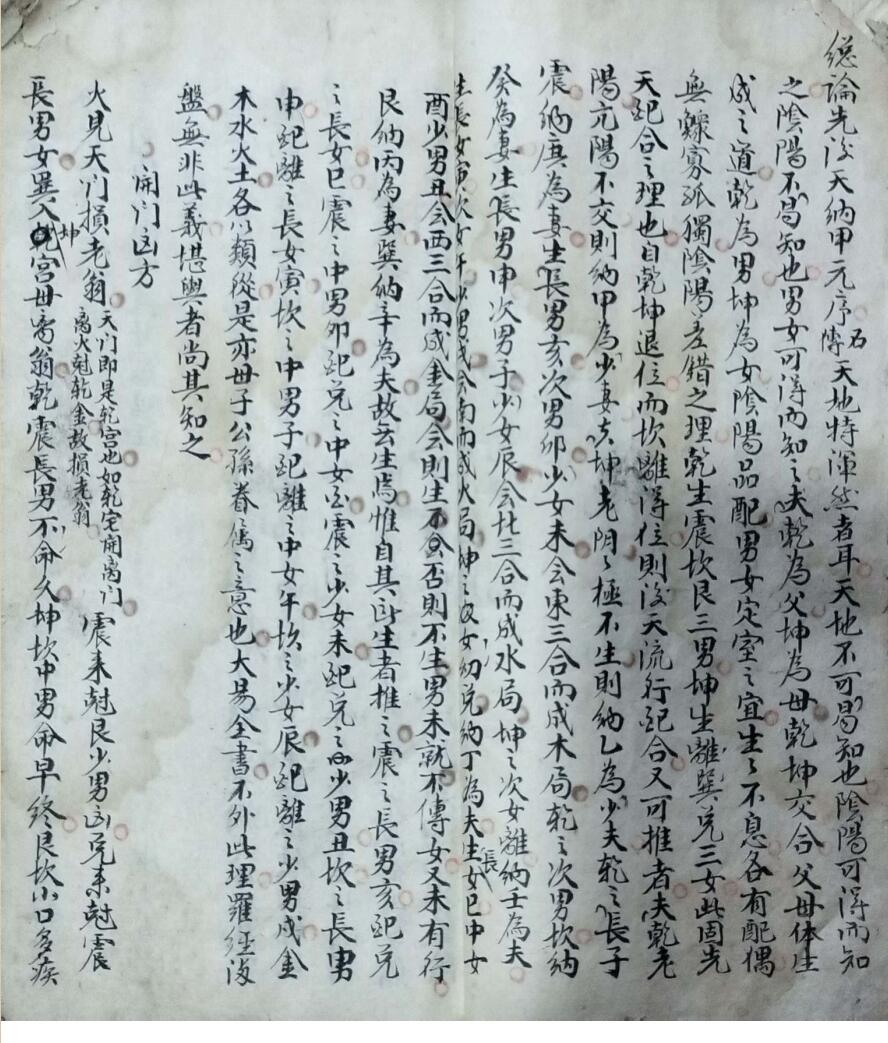 総論先後天納甲元序石傳天地特渾然者耳天地不可曷知也陰陽可得而知
之陰陽不曷知也男女可得而知之夫乾為父坤為母乾坤交合父母体生
成之道乾為男坤為女陰陽品配男女定室之宜生々不息各有配偶
無鰥寡孤獨陰陽差錯之理乾生震坎艮三男坤生離巽兌三女此固先
天配合之理也自乾坤退位而坎離得位則後天流行配合又可推者夫乾老
陽亢陽不交則納甲為少妻夫坤老阴々極不生則納乙為少夫乾之長子
震納庚為妻生長男亥次男卯少女未会東三合而成木局乾之次男坎納
癸為妻生長男申次男子少女辰会北三合而成水局坤之次女離納壬為夫
生長女寅次女午少男戌会南而成火局坤之女幼兌納丁為夫生長女巳中女
酉少男丑会西三合而成金局会則生不会否則不生男未就不傳女又未有行
艮納丙為妻巽納辛為夫故云生焉惟自其所生者推之震之長男亥配兌
之長女巳震之中男卯配兌之中女酉震之少女未配兌之少男丑坎之長男
申配離之長女寅坎之中男子配離之中女午坎之少女辰配離之少男戌金
木水火土各以類從是亦母子公孫眷属之意也大易全書不外此理羅經後
盤無非此義堪輿者尚其知之
開门凶方
火見天门損老翁天门即是乾宮也如乾宅開离门离火尅乾金故損老翁震来尅艮少男凶兌来尅震
長男女巽入坤宮母离翁乾震長男不命久坤坎中男命早終艮坎小口多疾